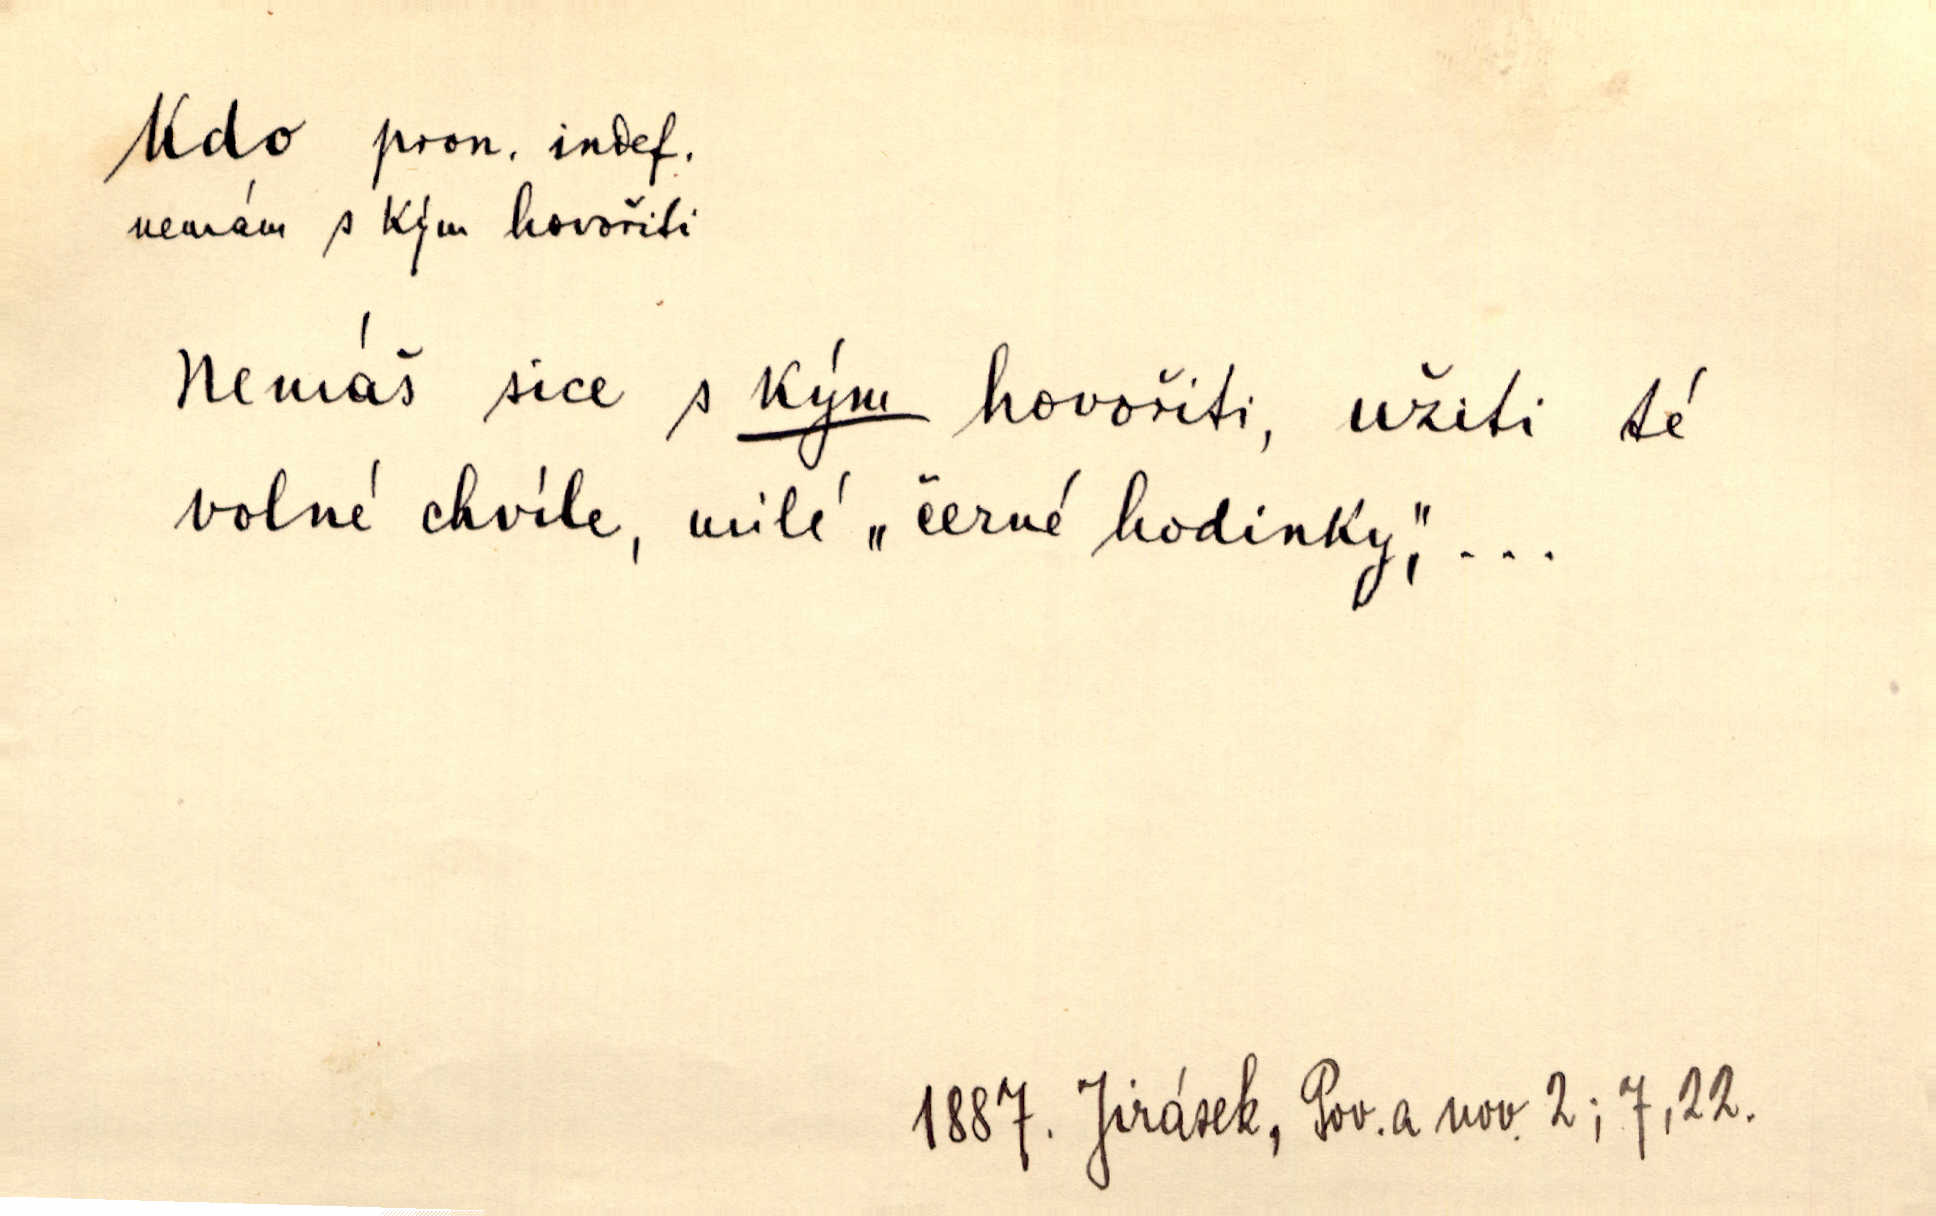 Kdo pron. indef.
nemám s kým hovořiti
Nemáš sice s kým hovořiti, užiti té
volné chvíle, milé „černé hodinky“, ...
1887. Jirásek, Pov. a nov. 2; 7, 22.